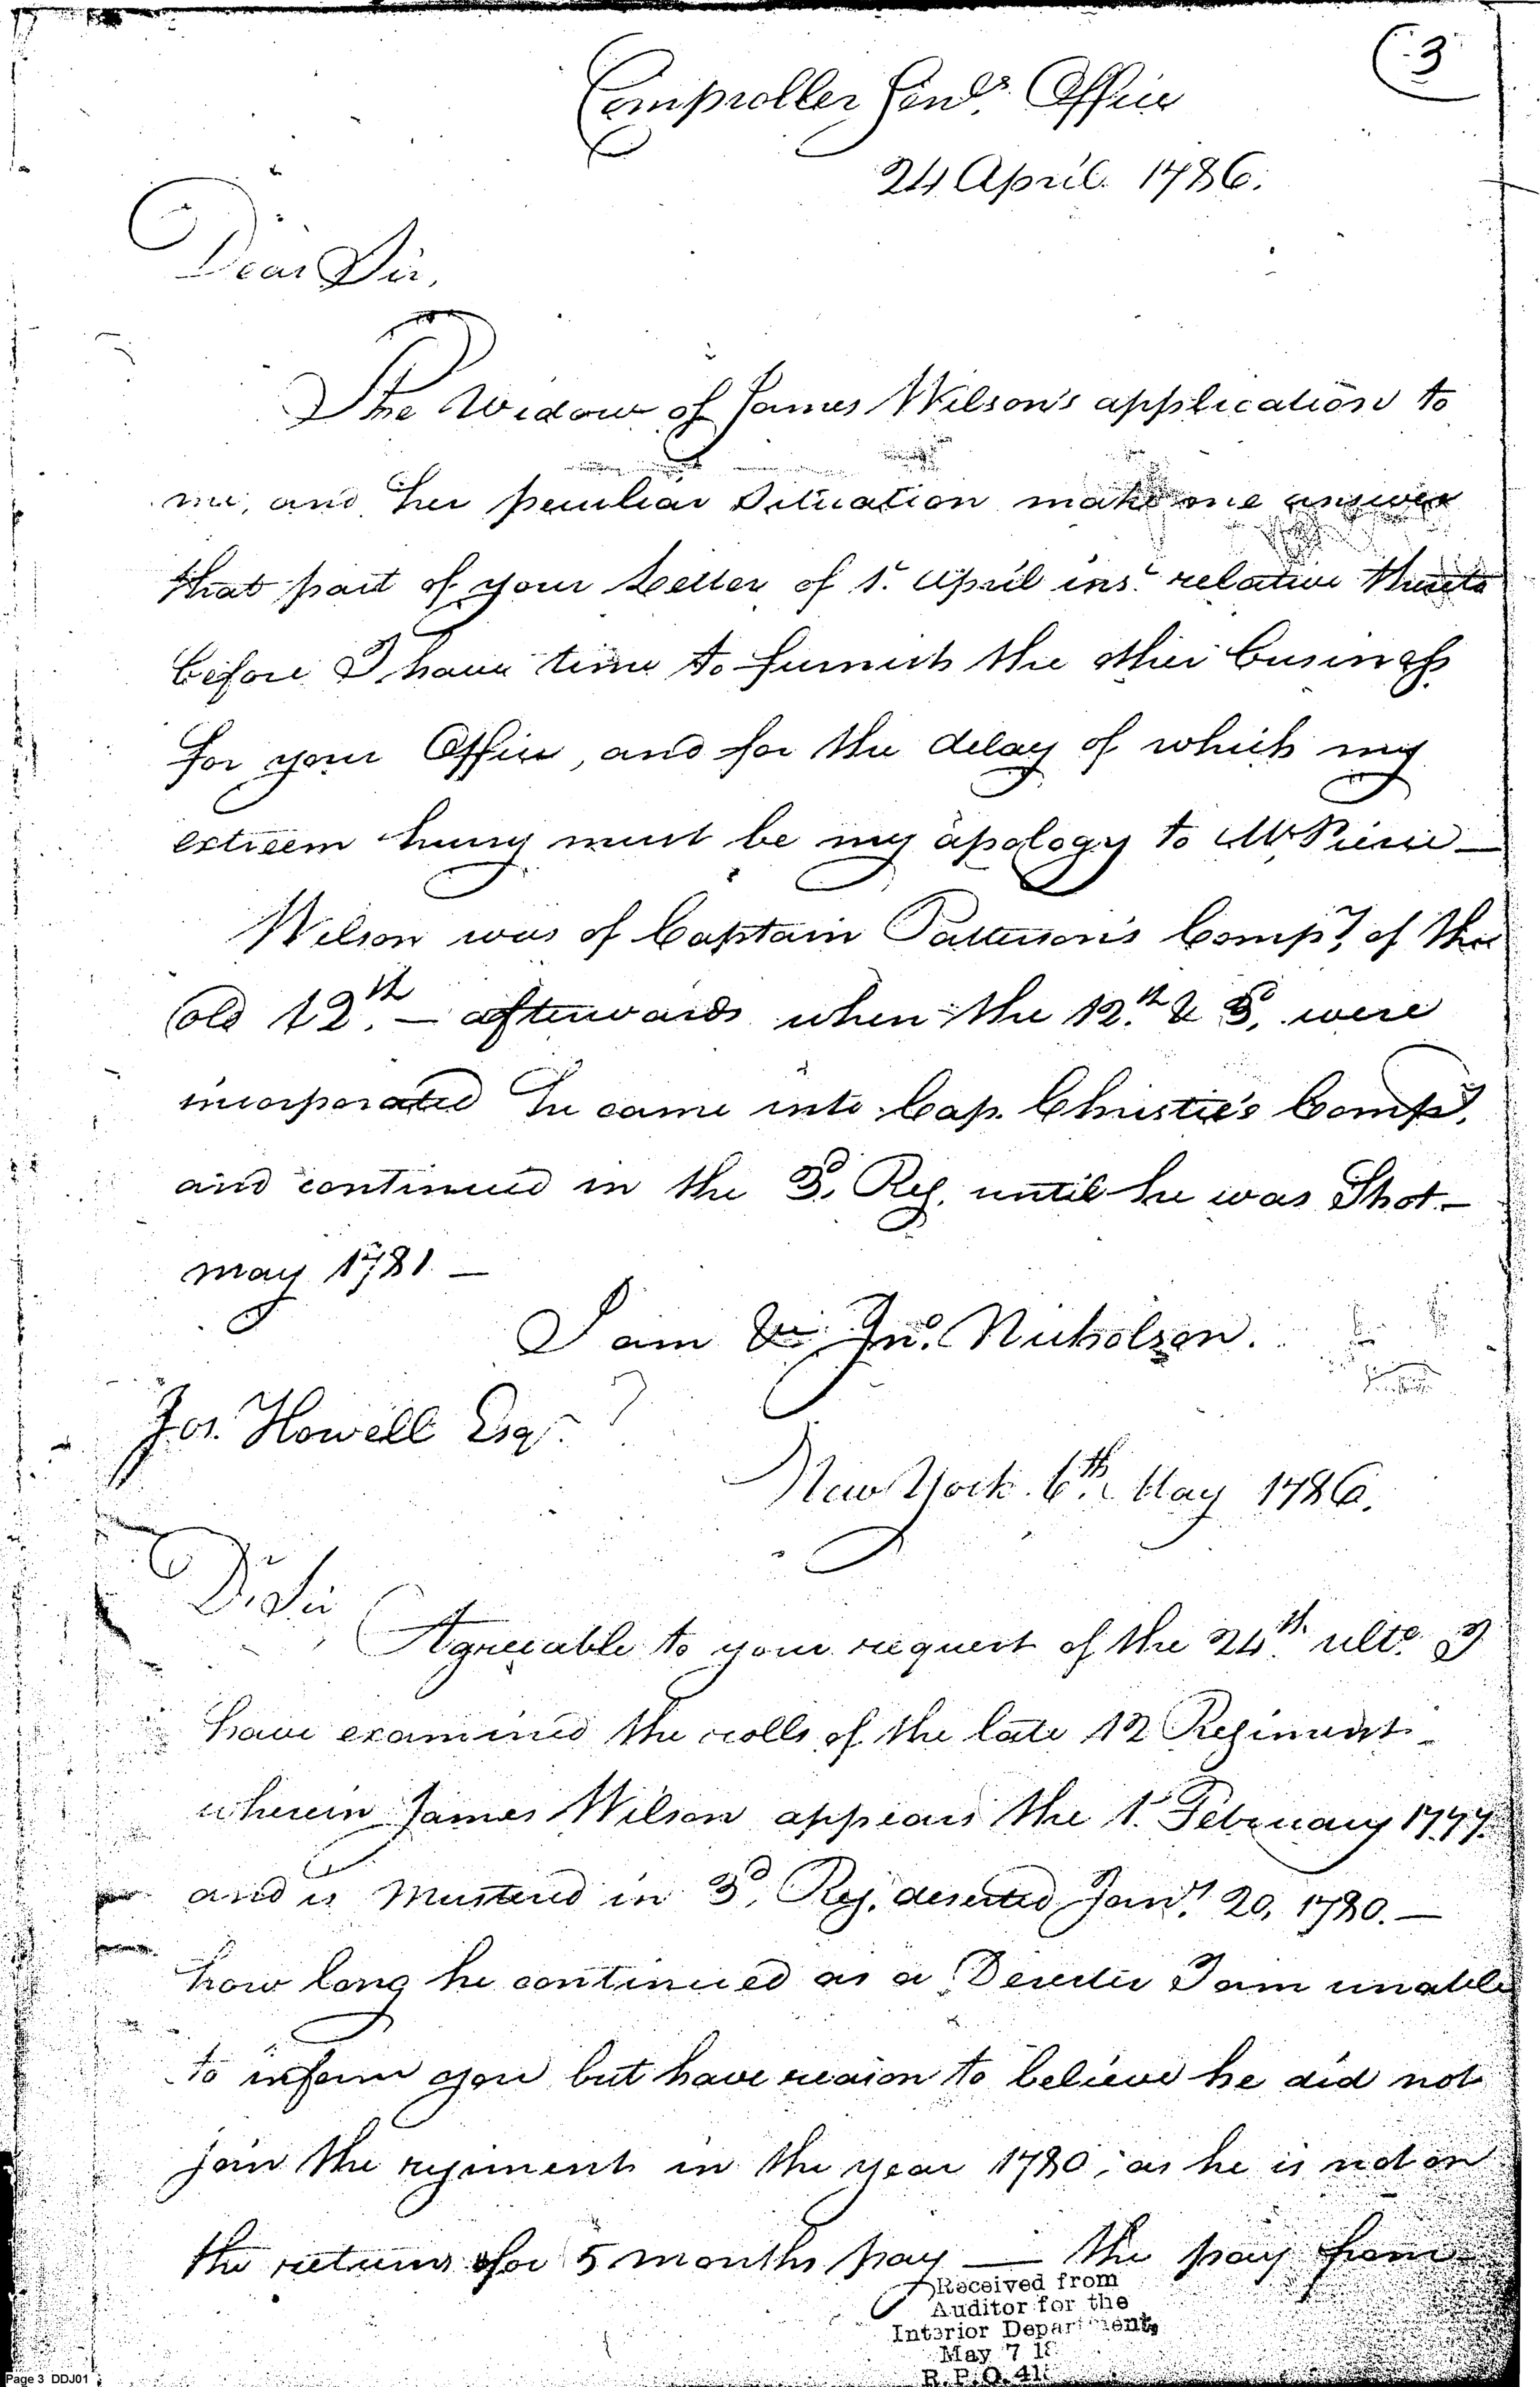 (3
Comptroller Genls. Office
24 April 1786.
Dear Sir,
The Widow of James Wilson's application to
me, and her peculiar Situation make me answer
that part of your Letter of 1st April inst. relative thereto
before I have time to furnish the other business
for your Office, and for the delay of which my
extreem hurry must be my apology to Mr. Pierce —
Wilson was of Captain Patterson's Compy. of the
old 12th. — afterwards when the 12th. & 3d. were
incorporated he came into Cap. Christie's Compy.
and continued in the 3d. Reg. until he was Shot —
may 1781 —
I am &c. Jno. Nicholson.
Jos. Howell Esqr.
New York 6th. May 1786.
Dr. Sir
Agreeable to your request of the 24th. ulto. I
have examined the rolls of the late 12 Regiment
wherein James Wilson appears the 1st. February 1777.
and is Mustered in 3d. Reg. deserted Jany. 20, 1780. —
how long he continued as a Deserter I am unable
to inform you but have reason to believe he did not
join the regiment in the year 1780, as he is not on
the returns for 5 months pay — the pay from
Received from
Auditor for the
Interior Department,
May 7 18
R. P. O. 41
Page 3 DDJ01